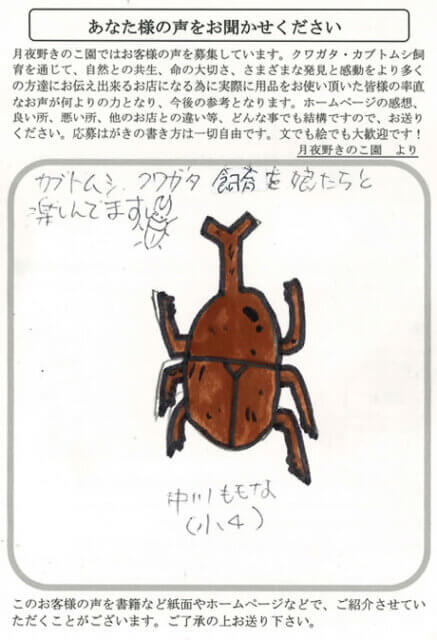 あなた様の声をお聞かせください
月夜野きのこ園ではお客様の声を募集しています。クワガタ・カブトムシ飼
育を通じて、自然との共生、命の大切さ、さまざまな発見と感動をより多く
の方達にお伝え出来るお店になる為に実際に用品をお使い頂いた皆様の率直
なお声が何よりの力となり、今後の参考となります。ホームページの感想、
良い所、悪い所、他のお店との違い等、どんな事でも結構ですので、お送り
ください。応募はがきの書き方は一切自由です。文でも絵でも大歓迎です！
月夜野きのこ園　より
カブトムシ、クワガタ 飼育を娘たちと
楽しんでます
中川ももな
（小4）
このお客様の声を書籍など紙面やホームページなどで、ご紹介させていた
だくことがございます。ご了承の上お送り下さい。